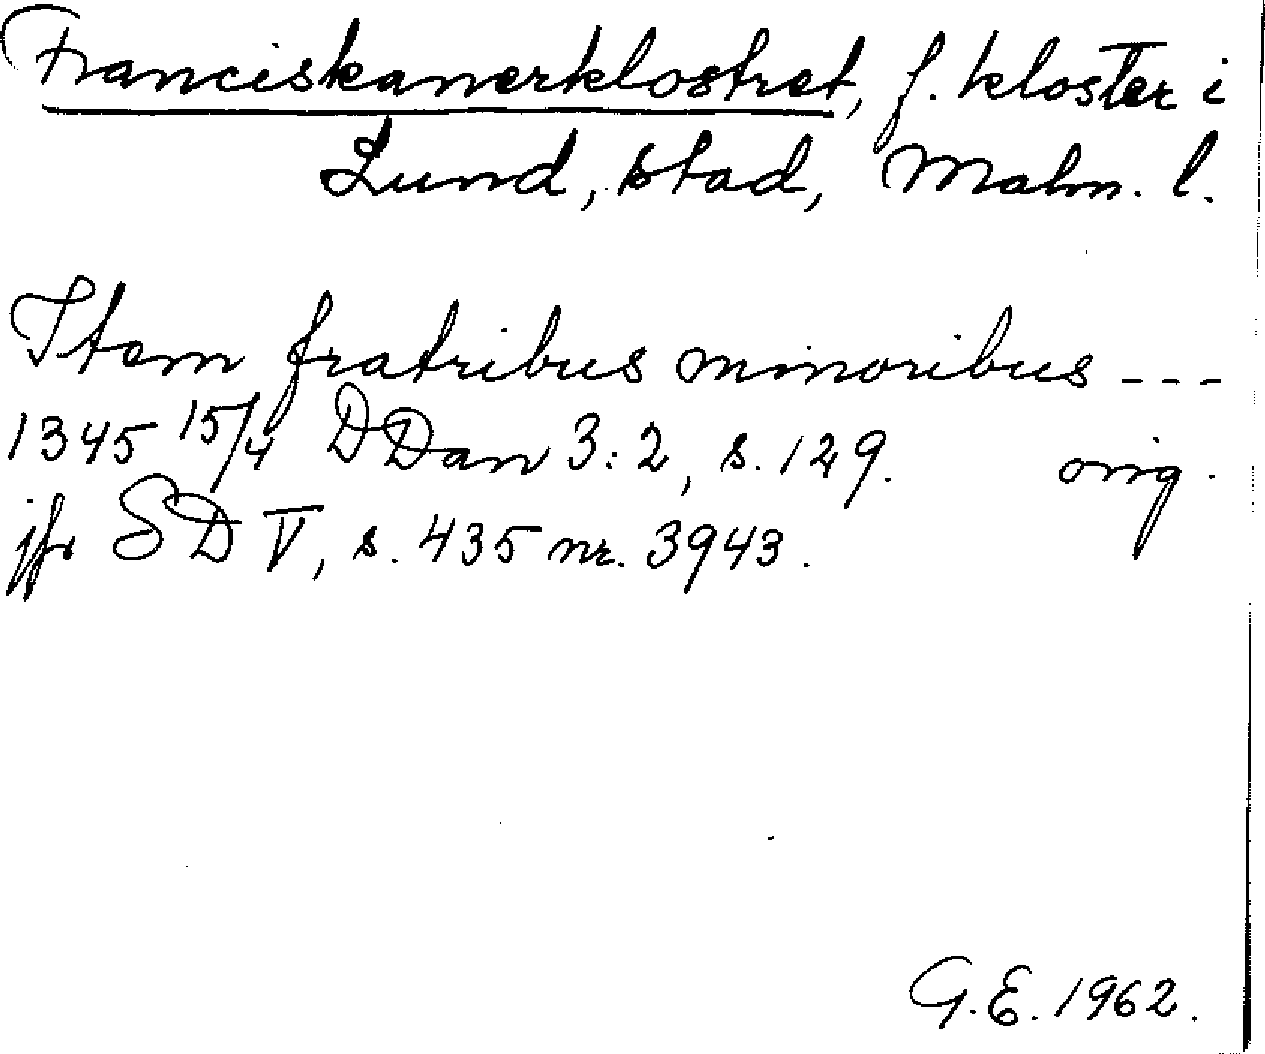 Franciskanerklostret, f. kloster i
Lund, stad, Malm. l.
Item fratribus minoribus ---
1345 15/4 DDan 3:2, s. 129. orig.
jfr SD V, s. 435 nr. 3943.
G.E. 1962.